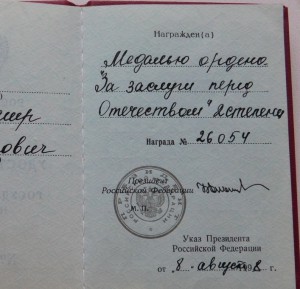 Награжден(а)
Медалью ордена
"За заслуги перед
Отечеством" II степени
мир
ович
Награда № 26054
Президент
Российской Федерации
М.П.
Указ Президента
Российской Федерации
от "8" августа